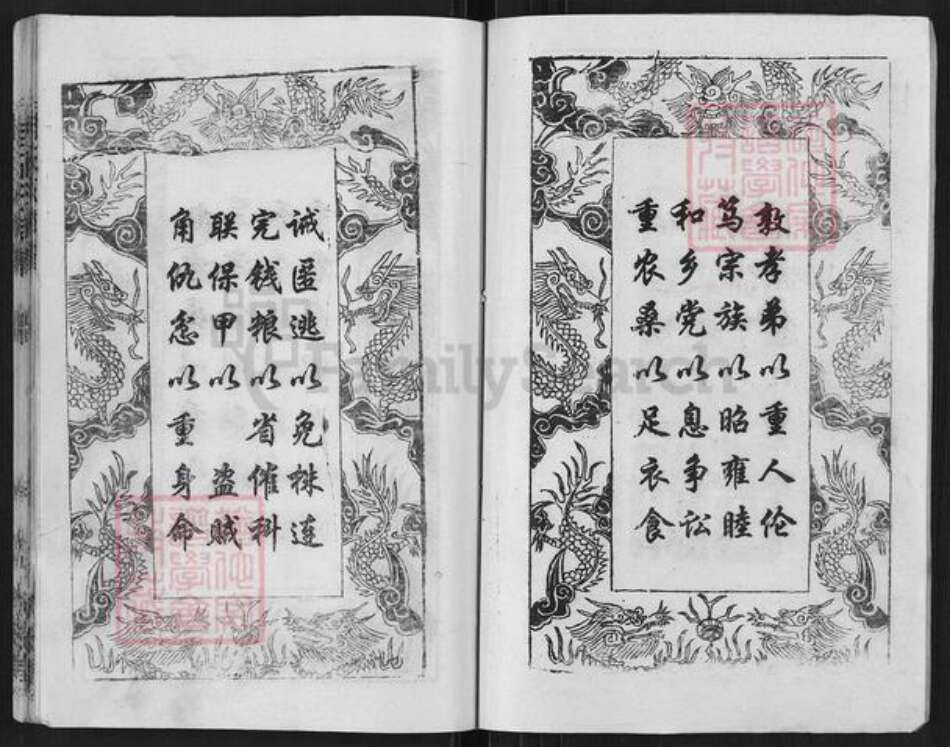 敦孝弟以重人伦
笃宗族以昭雍睦
和乡党以息争讼
重农桑以足衣食
诫匿逃以免株连
完钱粮以省催科
联保甲以 盗贼
角仇忿以重身命
FamilySearch